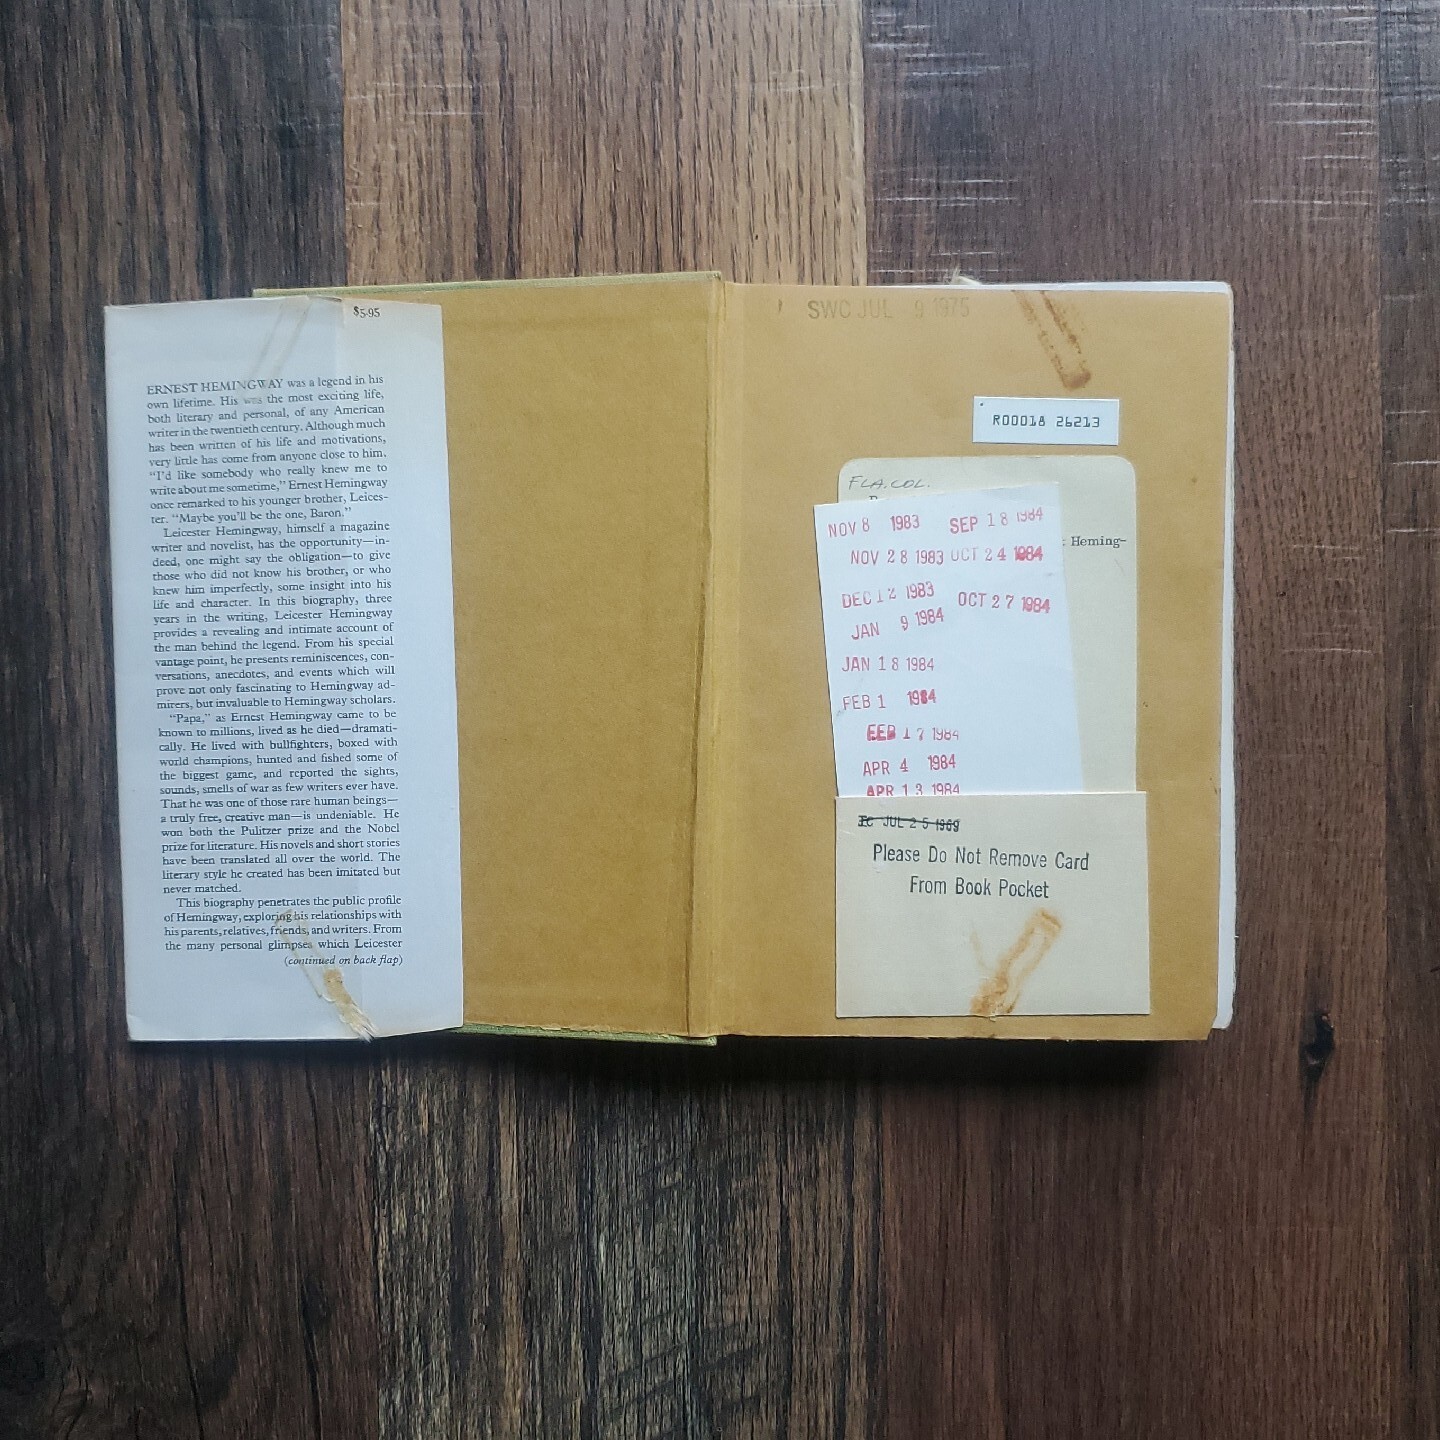 $5.95
ERNEST HEMINGWAY was a legend in his
own lifetime. His was the most exciting life,
both literary and personal, of any American
writer in the twentieth century. Although much
has been written of his life and motivations,
very little has come from anyone close to him.
“I’d like somebody who really knew me to
write about me sometime,” Ernest Hemingway
once remarked to his younger brother, Leices-
ter. “Maybe you’ll be the one, Baron.”
Leicester Hemingway, himself a magazine
writer and novelist, has the opportunity—in-
deed, one might say the obligation—to give
those who did not know his brother, or who
knew him imperfectly, some insight into his
life and character. In this biography, three
years in the writing, Leicester Hemingway
provides a revealing and intimate account of
the man behind the legend. From his special
vantage point, he presents reminiscences, con-
versations, anecdotes, and events which will
prove not only fascinating to Hemingway ad-
mirers, but invaluable to Hemingway scholars.
“Papa,” as Ernest Hemingway came to be
known to millions, lived as he died—dramati-
cally. He lived with bullfighters, boxed with
world champions, hunted and fished some of
the biggest game, and reported the sights,
sounds, smells of war as few writers ever have.
That he was one of those rare human beings—
a truly free, creative man—is undeniable. He
won both the Pulitzer prize and the Nobel
prize for literature. His novels and short stories
have been translated all over the world. The
literary style he created has been imitated but
never matched.
This biography penetrates the public profile
of Hemingway, exploring his relationships with
his parents, relatives, friends, and writers. From
the many personal glimpses which Leicester
(continued on back flap)
SWC JUL 9 1975
R00018 26213
FLA. COL.
: Heming-
NOV 8 1983 SEP 18 1984
NOV 28 1983 OCT 24 1984
DEC 12 1983 OCT 27 1984
JAN 9 1984
JAN 18 1984
FEB 1 1984
FEB 17 1984
APR 4 1984
APR 13 1984
JUL 25 1969
Please Do Not Remove Card
From Book Pocket